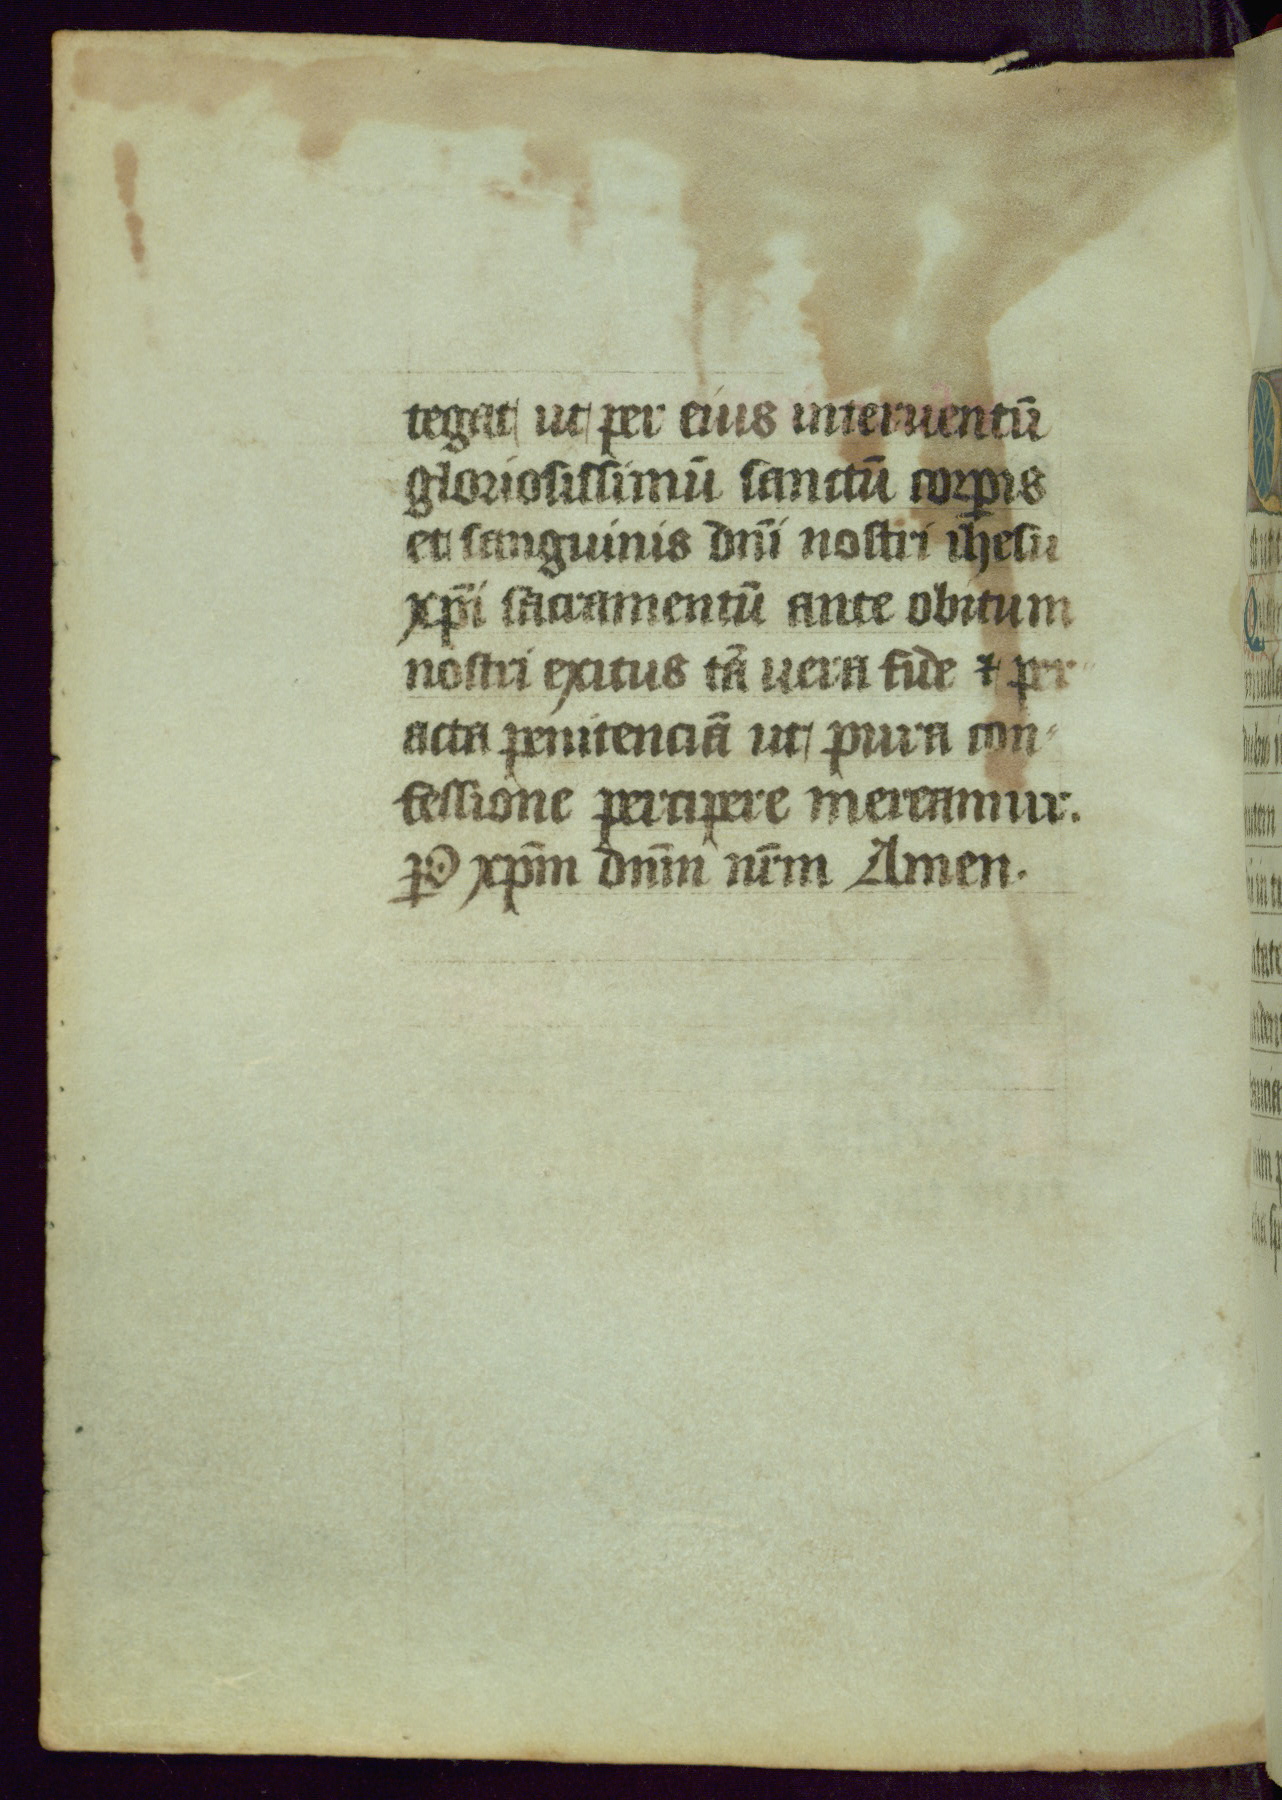 tegat ut per eius interuentū
gloriosissimū sanctū corꝑis
et sanguinis dn̄i nostri ihesu
xp̄i sacramentū ante obitum
nostri exitus tā uera fide ⁊ per
acta penitenciā ut pura con-
fessione percipere mereamur.
ꝑ xp̄m dn̄m nr̄m Amen.